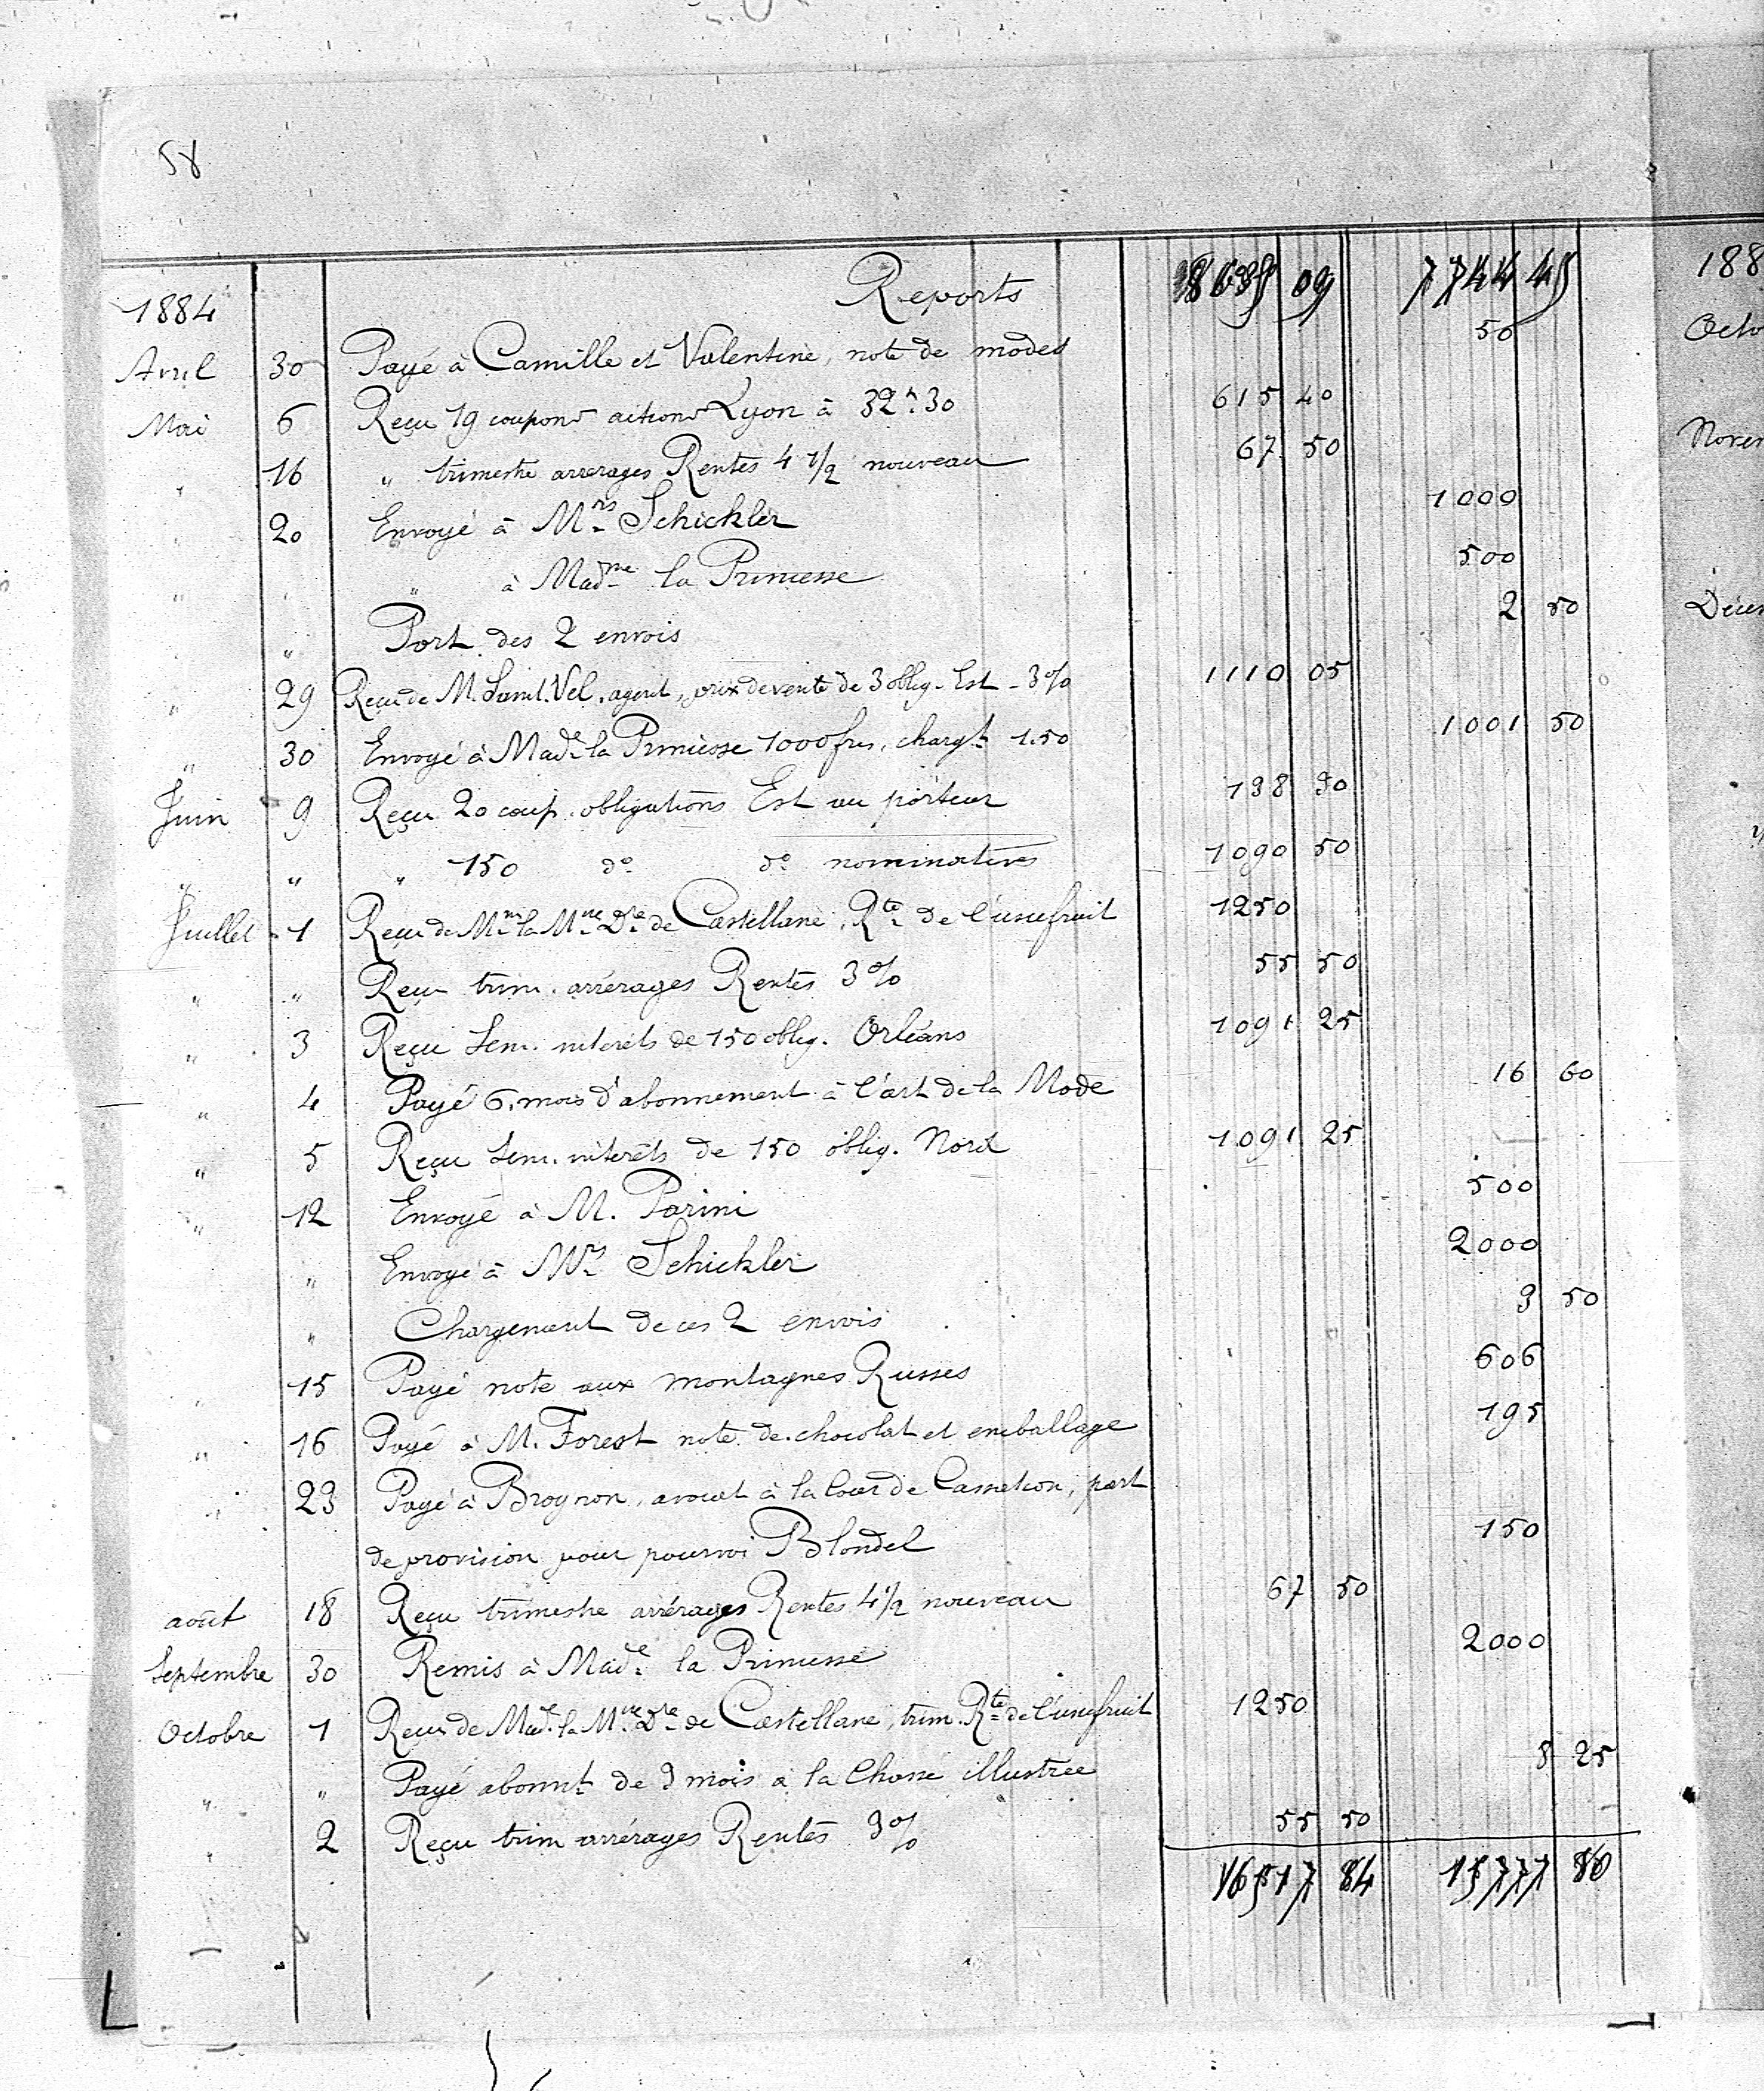 58
Reports 8635 09 7744 45
1884
Avril 30 Payé à Camille et Valentine, note de modes 50
Mai 6 Reçu 19 coupons actions Lyon à 32f.30 615 40
" 16 " trimestre arrerages Rentes 4 1/2 nouveau 67 50
" 20 Envoyé à Mrs Schickler 1000
" " " à Madme la Princesse 500
" Port des 2 envois 2 50
" 29 Reçu de M. Saint. Vel, agent, prix de vente de 3 oblig. Est - 3% 1110 05
" 30 Envoyé à Made la Princesse 1000 frs, chargt 1.50 1001 50
Juin 9 Reçu 20 coup. obligations Est au porteur 138 30
" " " 150 do do nominatives 1090 50
Juillet 1 Reçu de Mme la Mise Dre de Castellane, Rte de l'usufruit 1250
" " Reçu trim. arrérages Rentes 3% 55 50
" 3 Reçu Sem. intérêts de 150 oblig. Orléans 1091 25
" 4 Payé 6 mois d'abonnement à l'art de la Mode 16 60
" 5 Reçu Sem. intérêts de 150 oblig. Nord 1091 25
" 12 Envoyé à M. Parini 500
" Envoyé à Mrs Schickler 2000
" Chargement de ces 2 envois 3 50
" 15 Payé note aux montagnes Russes 606
" 16 Payé à M. Forest note de chocolat et emballage 195
" 23 Payé à Brognon, avocat à la Cour de Cassation, part
de provision pour pourvoi Blondel 150
août 18 Reçu trimestre arrérages Rentes 4 1/2 nouveau 67 50
Septembre 30 Remis à Made la Princesse 2000
Octobre 1 Reçu de Made la Mise Dre de Castellane, trim. Rte de l'usufruit 1250
" " Payé abonnt de 3 mois à la Chasse illustrée 8 25
" 2 Reçu trim arrérages Rentes 3% 55 50
16517 84 15777 80
188
Octo
Novem
Décem